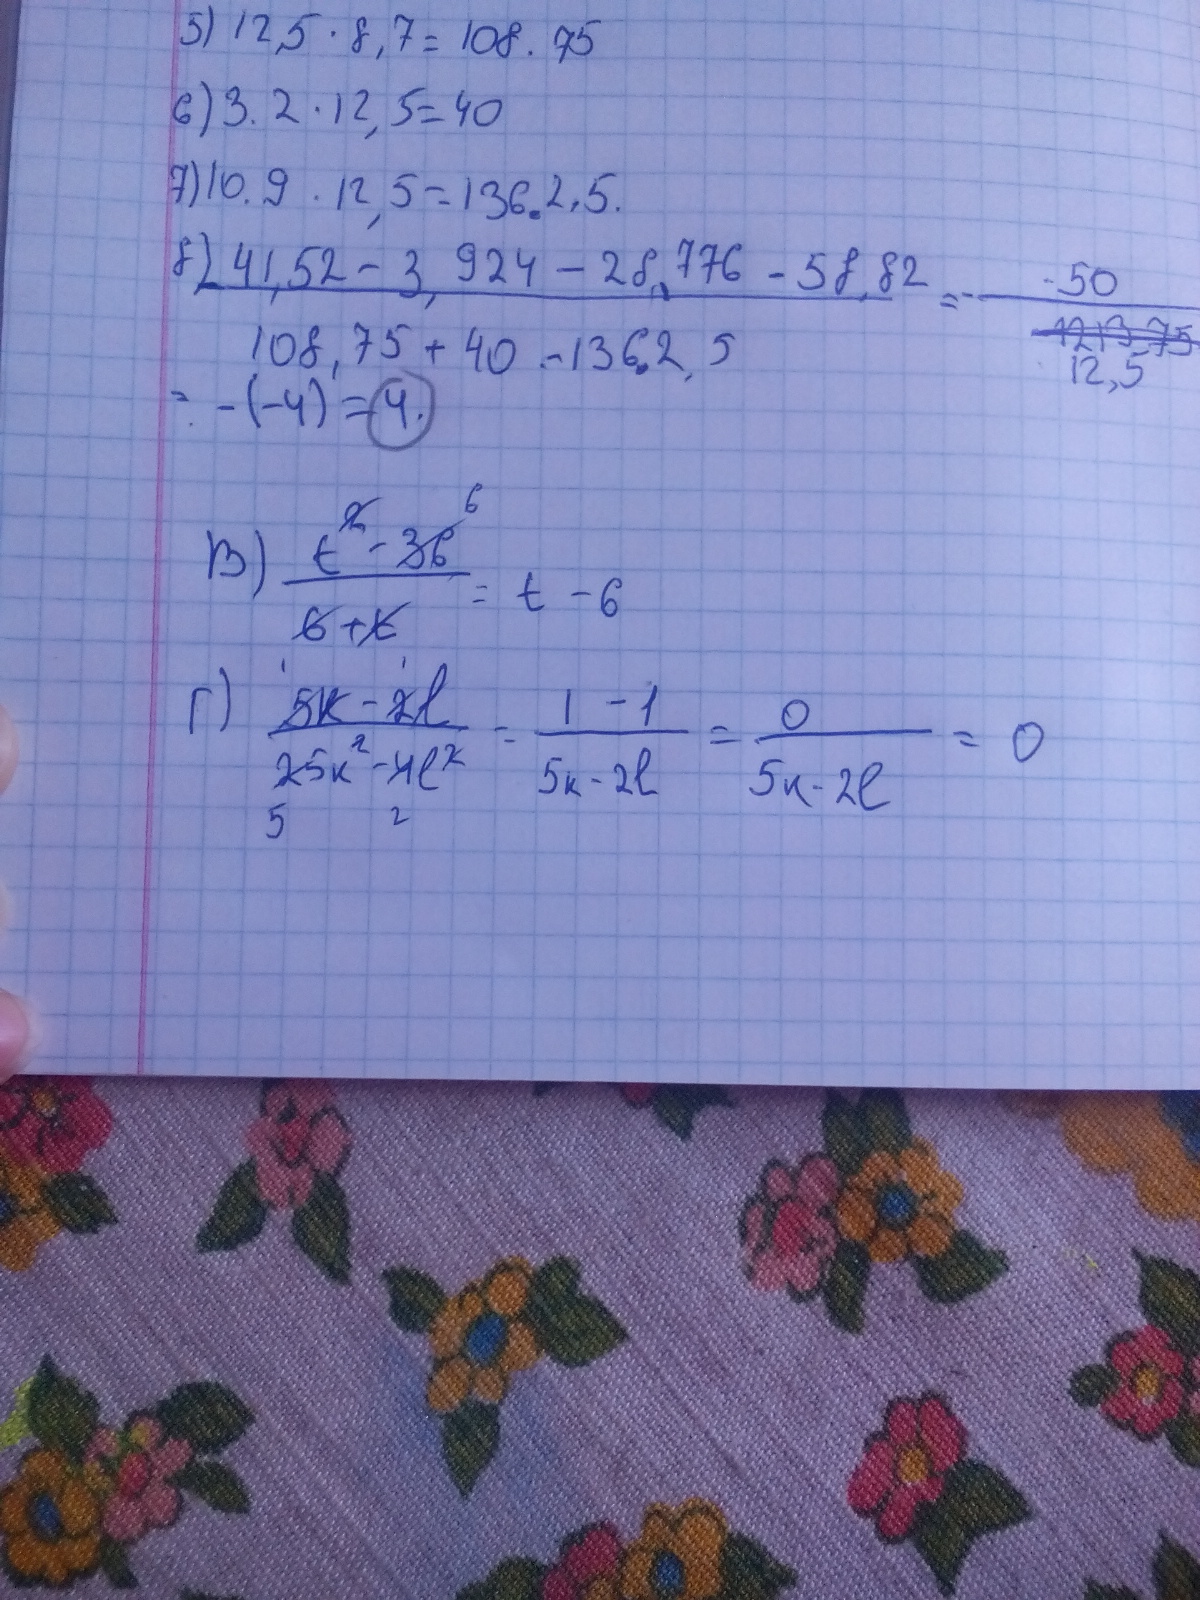 5) 12,5 · 8,7 = 108.75
6) 3.2 · 12,5 = 40
7) 10.9 · 12,5 = 136.2,5.
8) 41,52 - 3,924 - 28,776 - 58,82 = - -50
108,75 + 40 - 136.2,5 12,5
= -(-4) = 4.
В) t² - 36 6
6 + t = t - 6
1 1
Г) 5к - 2l = 1 - 1 = 0 = 0
25к² - 4l² 5к - 2l 5к - 2l
5 2